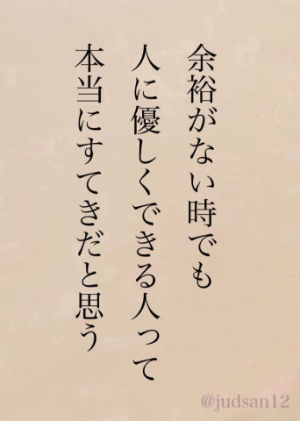 余裕がない時でも
人に優しくできる人って
本当にすてきだと思う
@judsan12